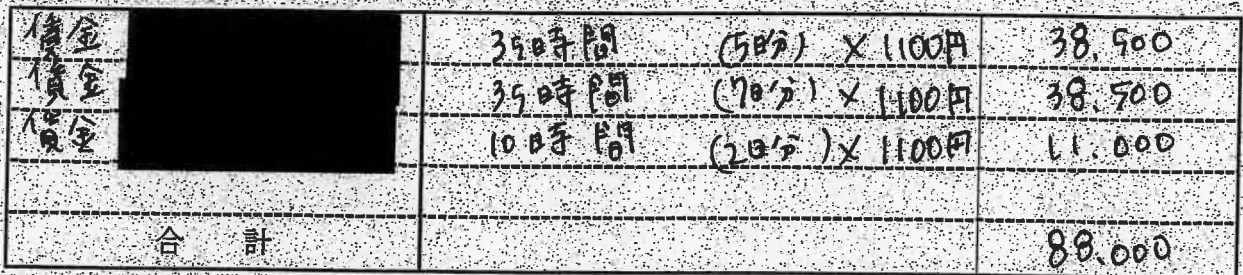 償金 35時間 (5日分) × 1100円 38,500
償金 35時間 (7日分) × 1100円 38,500
償金 10時間 (2日分) × 1100円 11,000
合計 88,000